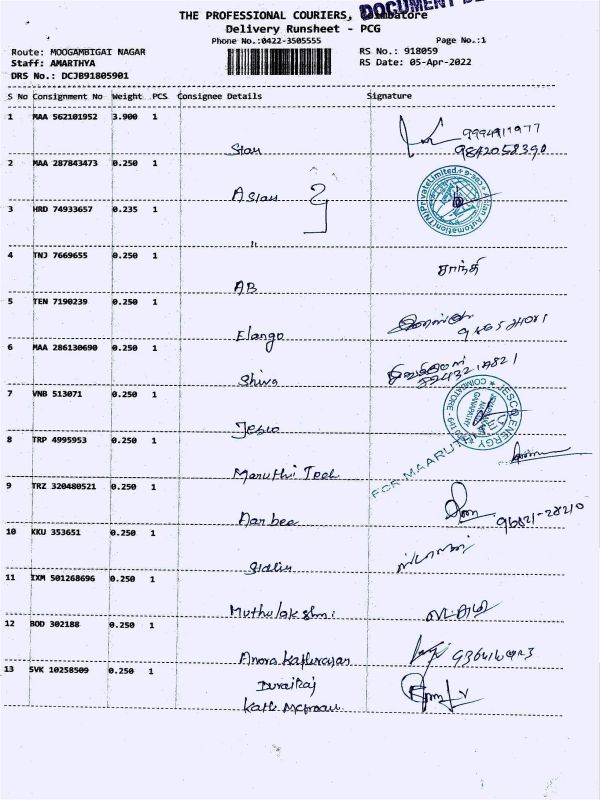 THE PROFESSIONAL COURIERS, Coimbatore
DOCUMENT
Delivery Runsheet - PCG
Phone No.:0422-3505555
Page No.:1
Route: MOOGAMBIGAI NAGAR
RS No.: 918059
Staff: AMARTHYA
RS Date: 05-Apr-2022
DRS No.: DCJB91805901
S No Consignment No Weight PCS Consignee Details Signature
1 MAA 562101952 3.900 1
Stan 9842058390
2 MAA 287843473 0.250 1
Asian Asian Automation(TN)Private Limited
3 HRD 74933657 0.235 1
"
4 TNJ 7669655 0.250 1
AB சாந்தி
5 TEN 7190239 0.250 1
Elango
6 MAA 286130690 0.250 1
Shiva
7 VNB 513071 0.250 1
Jesco JESCO ENERGY COIMBATORE
8 TRP 4995953 0.250 1
Maruthi Tech FOR MAARUTHI
9 TRZ 320480521 0.250 1
Aarbee 96821-28210
10 KKU 353651 0.250 1
11 IXM 501268696 0.250 1
Muthulakshmi
12 BOD 302188 0.250 1
13 SVK 10258509 0.250 1
DuraiRaj